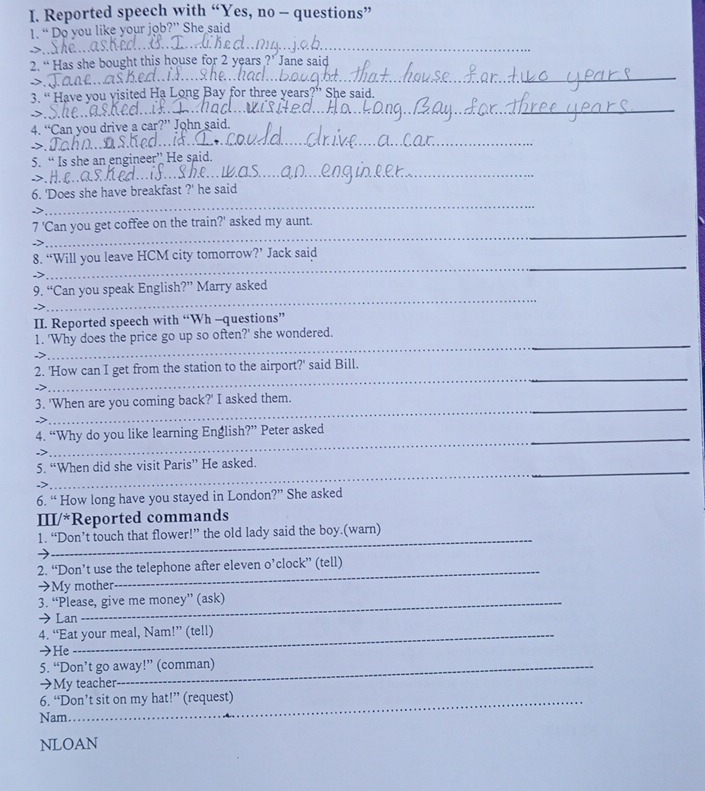 I. Reported speech with “Yes, no – questions”
1. “ Do you like your job?” She said
->. She asked if I liked my job
2. “ Has she bought this house for 2 years ?” Jane said
->. Jane asked if she had bought that house for two years
3. “ Have you visited Ha Long Bay for three years?” She said.
->. She asked if I had visited Ha Long Bay for three years
4. “Can you drive a car?” John said.
->. John asked if I could drive a car
5. “ Is she an engineer” He said.
->. He asked if she was an engineer.
6. 'Does she have breakfast ?' he said
->
7 'Can you get coffee on the train?' asked my aunt.
->
8. “Will you leave HCM city tomorrow?” Jack said
->
9. “Can you speak English?” Marry asked
->
II. Reported speech with “Wh –questions”
1. 'Why does the price go up so often?' she wondered.
->
2. 'How can I get from the station to the airport?' said Bill.
->
3. 'When are you coming back?' I asked them.
->
4. “Why do you like learning English?” Peter asked
->
5. “When did she visit Paris” He asked.
->
6. “ How long have you stayed in London?” She asked
III/*Reported commands
1. “Don’t touch that flower!” the old lady said the boy.(warn)
→
2. “Don’t use the telephone after eleven o’clock” (tell)
→My mother
3. “Please, give me money” (ask)
→ Lan
4. “Eat your meal, Nam!” (tell)
→He
5. “Don’t go away!” (comman)
→My teacher
6. “Don’t sit on my hat!” (request)
Nam
NLOAN